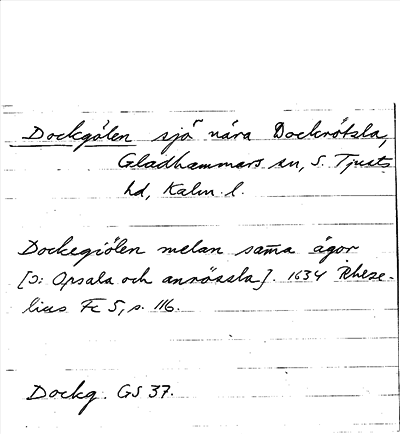 Dockgölen sjö nära Dockrötsla,
Gladhammars sn, S. Tjusts
hd, Kalm. l.
Dockegiölen melan sam̅a ägor
[ɔ: Opsala och anrössla]. 1634 Rheze-
lius Fc 5, s. 116.
Dockg. GS 37.